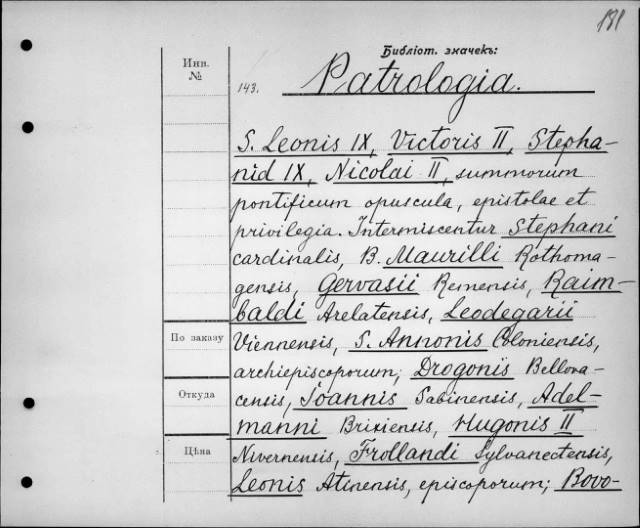 181
Библіот. значекъ:
Инв.
№
143.
Patrologia.
S. Leonis IX, Victoris II, Stepha-
nid IX, Nicolai II, summorum
pontificum opuscula, epistolae et
privilegia. Intermiscentur Stephani
cardinalis, B. Maurilli Rothoma-
gensis, Gervasii Remensis, Raim-
baldi Arelatensis, Leodegarii
По заказу
Viennensis, S. Annonis Coloniensis,
archiepiscoporum; Drogonis Bellova-
Откуда
censis, Joannis Sabinensis, Adel-
manni Brixiensis, Hugonis II
Цѣна
Nivernensis, Frollandi Sylvanectensis,
Leonis Atinensis, episcoporum; Bovo-